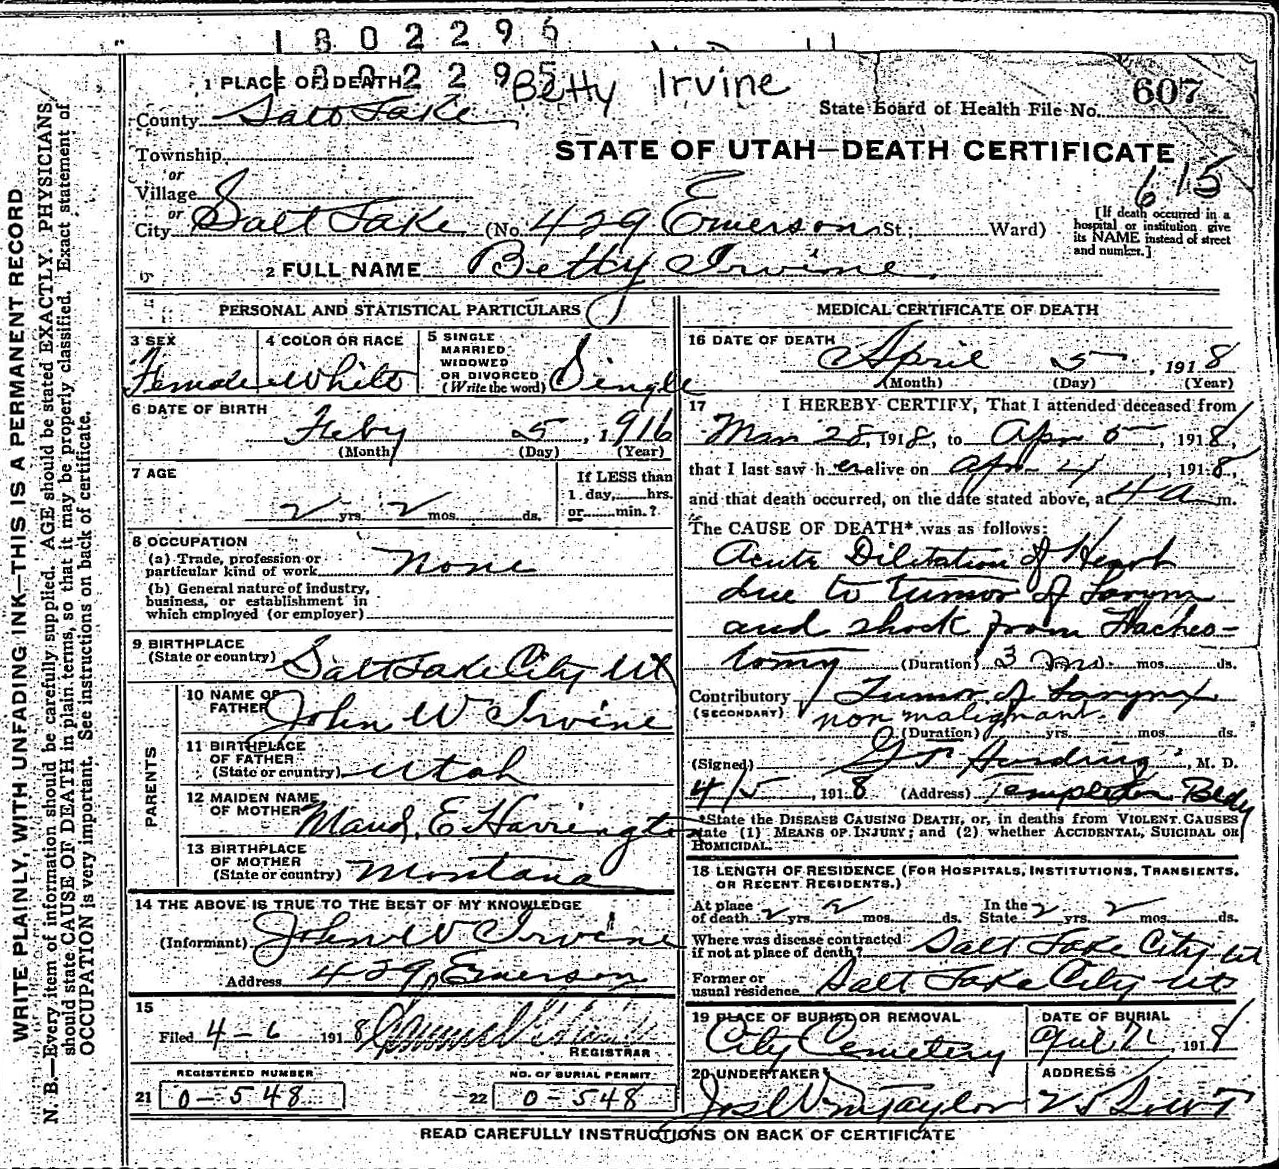 1802296
1802295
Betty Irvine
1 PLACE OF DEATH
State Board of Health File No. 607
County Salt Lake
STATE OF UTAH—DEATH CERTIFICATE
615
Township
or
Village
or
City Salt Lake (No. 429 Emerson St.; Ward)
[If death occurred in a
hospital or institution give
its NAME instead of street
and number.]
2 FULL NAME Betty Irvine
PERSONAL AND STATISTICAL PARTICULARS
3 SEX
Female
4 COLOR OR RACE
White
5 SINGLE
MARRIED
WIDOWED
OR DIVORCED
(Write the word) Single
6 DATE OF BIRTH
Feby 5, 1916
(Month) (Day) (Year)
7 AGE
2 yrs. 2 mos. ds.
If LESS than
1 day, hrs.
or min.?
8 OCCUPATION
(a) Trade, profession or
particular kind of work None
(b) General nature of industry,
business, or establishment in
which employed (or employer)
9 BIRTHPLACE
(State or country) Salt Lake City Ut
PARENTS
10 NAME OF
FATHER John W Irvine
11 BIRTHPLACE
OF FATHER
(State or country) Utah
12 MAIDEN NAME
OF MOTHER Maud E Harrington
13 BIRTHPLACE
OF MOTHER
(State or country) Montana
14 THE ABOVE IS TRUE TO THE BEST OF MY KNOWLEDGE
(Informant) John W Irvine
Address 429 Emerson
15
Filed 4-6 1918
REGISTRAR
REGISTERED NUMBER
21 0-548
NO. OF BURIAL PERMIT
22 0-548
MEDICAL CERTIFICATE OF DEATH
16 DATE OF DEATH
April 5, 1918
(Month) (Day) (Year)
17 I HEREBY CERTIFY, That I attended deceased from
Mar 28, 1918, to Apr 5, 1918,
that I last saw her alive on Apr 4, 1918,
and that death occurred, on the date stated above, at 4 a m.
The CAUSE OF DEATH* was as follows:
Acute Dilitation of Heart
due to tumor of Larynx
and shock from Tracheo-
tomy (Duration) 3 mo. mos. ds.
Contributory Tumor of Larynx
(SECONDARY) non malignant
(Duration) yrs. mos. ds.
(Signed) Harding, M. D.
4/5, 1918 (Address) Templeton Bldg
*State the DISEASE CAUSING DEATH, or, in deaths from VIOLENT CAUSES
state (1) MEANS OF INJURY; and (2) whether ACCIDENTAL, SUICIDAL OR
HOMICIDAL.
18 LENGTH OF RESIDENCE (FOR HOSPITALS, INSTITUTIONS, TRANSIENTS,
OR RECENT RESIDENTS.)
At place
of death 2 yrs. 2 mos. ds.
In the
State 2 yrs. 2 mos. ds.
Where was disease contracted
if not at place of death? Salt Lake City Ut
Former or
usual residence Salt Lake City Ut
19 PLACE OF BURIAL OR REMOVAL
City Cemetery
DATE OF BURIAL
April 7, 1918
20 UNDERTAKER
Jos Wm Taylor
ADDRESS
READ CAREFULLY INSTRUCTIONS ON BACK OF CERTIFICATE
WRITE PLAINLY, WITH UNFADING INK—THIS IS A PERMANENT RECORD
N. B.—Every item of information should be carefully supplied. AGE should be stated EXACTLY. PHYSICIANS
should state CAUSE OF DEATH in plain terms, so that it may be properly classified. Exact statement of
OCCUPATION is very important. See instructions on back of certificate.